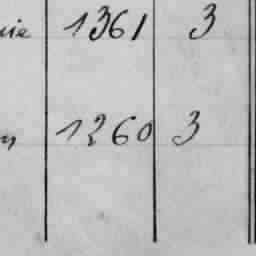 1361 3
1260 3